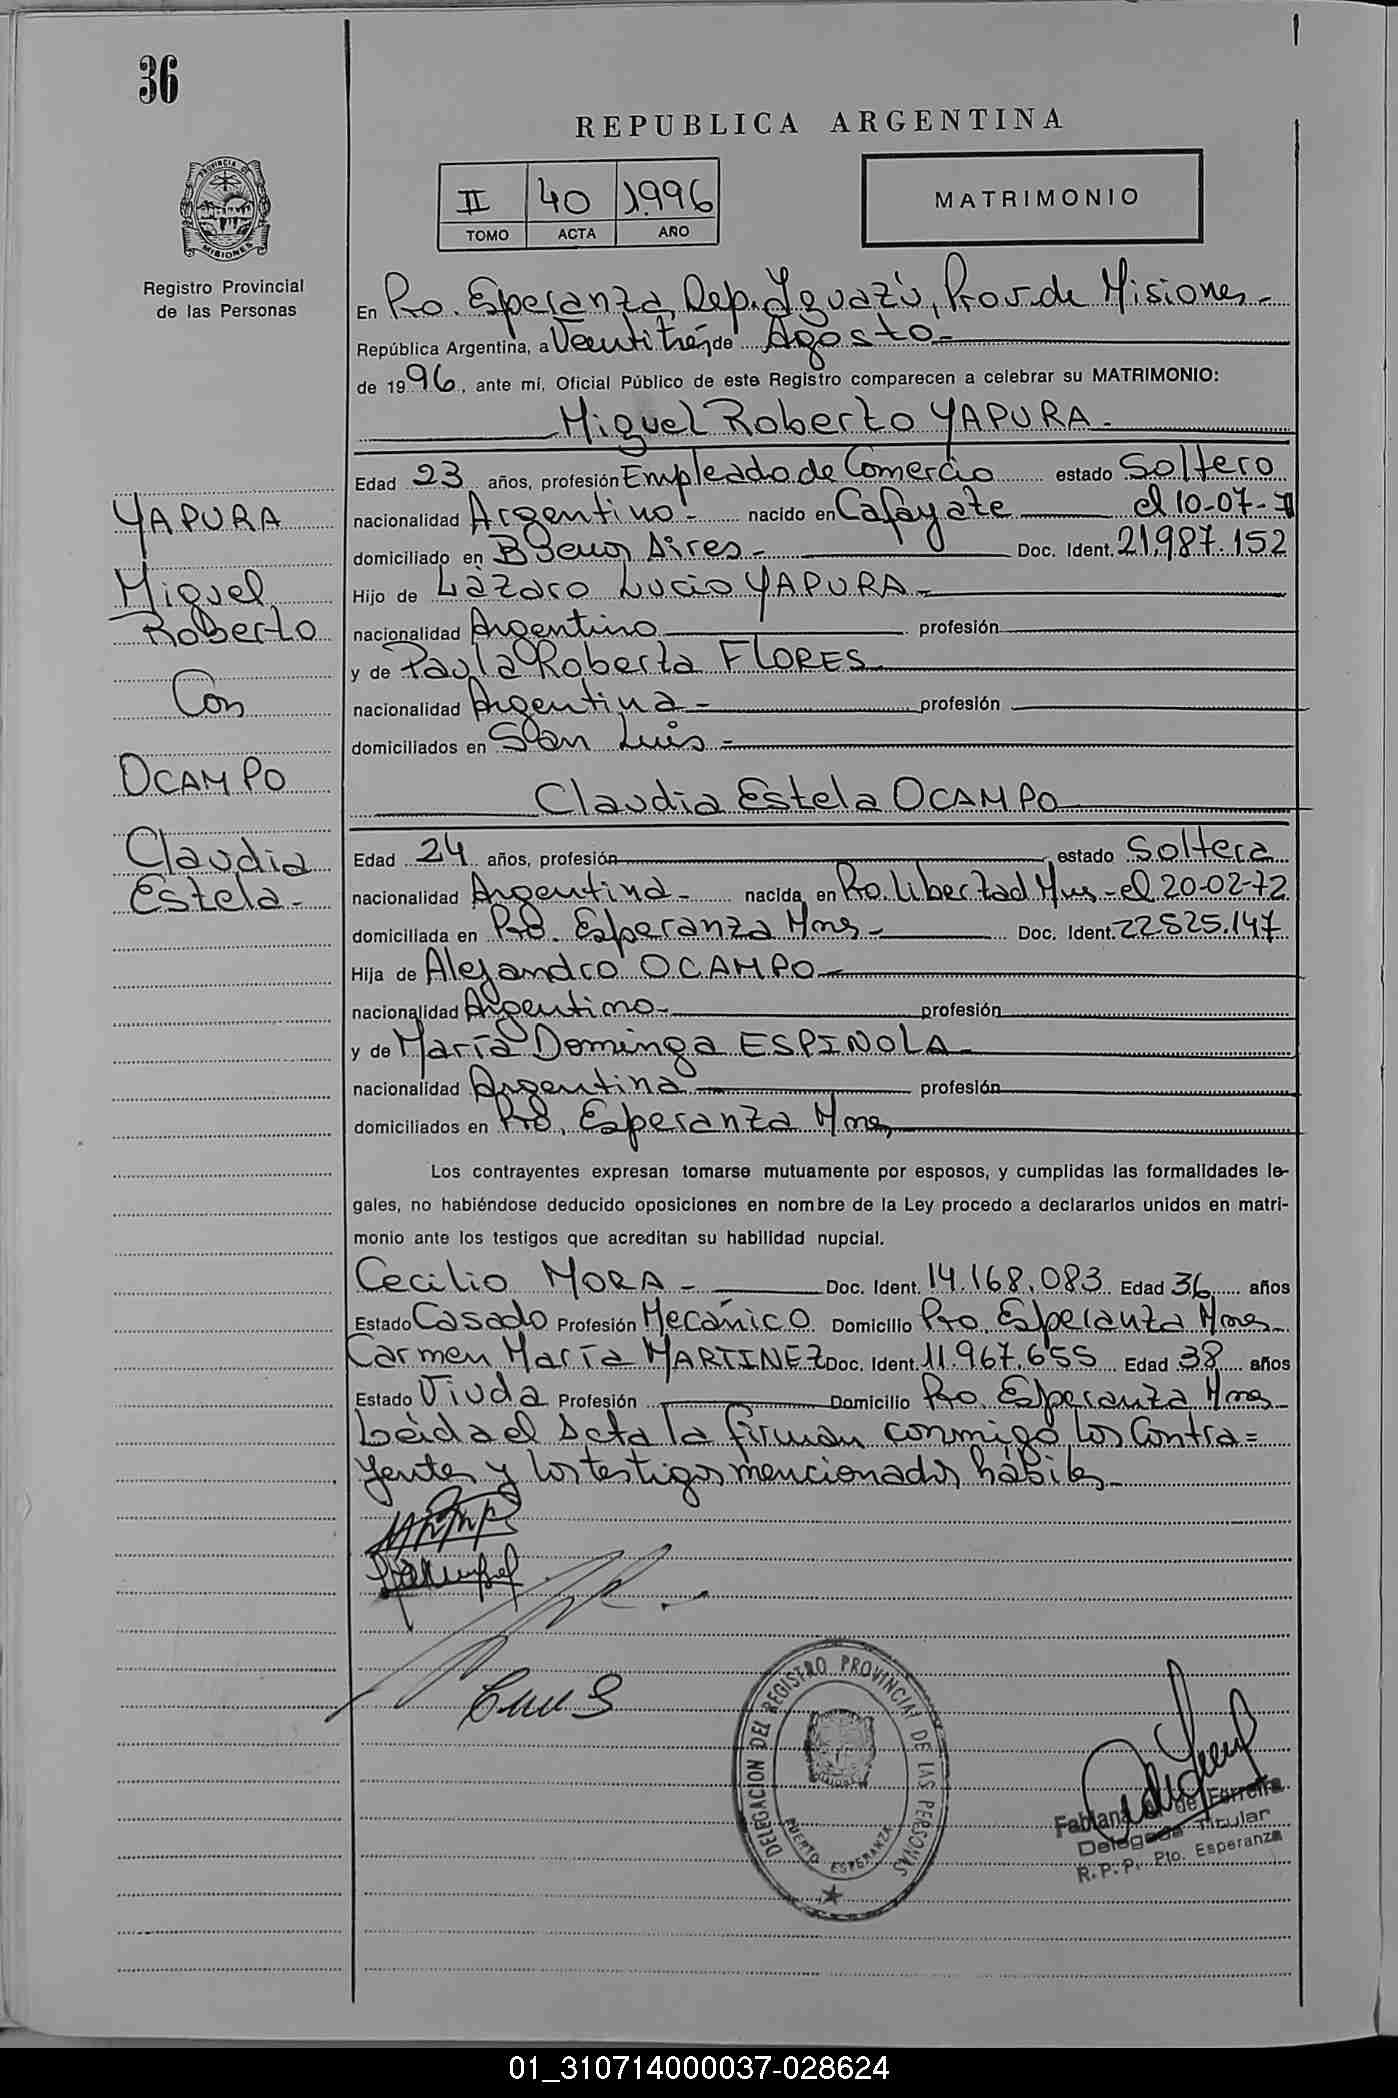 36
REPUBLICA ARGENTINA
II 40 1996
TOMO ACTA AÑO
MATRIMONIO
PROVINCIA DE MISIONES
Registro Provincial
de las Personas
En Pto. Esperanza, Dep. Iguazú, Prov. de Misiones -
República Argentina, a Veintitrés de Agosto -
de 1996, ante mí, Oficial Público de este Registro comparecen a celebrar su MATRIMONIO:
Miguel Roberto YAPURA -
Edad 23 años, profesión Empleado de Comercio estado Soltero
nacionalidad Argentino - nacido en Cafayate el 10-07-71
domiciliado en Buenos Aires - Doc. Ident. 21.987.152
Hijo de Lázaro Lucio YAPURA -
nacionalidad Argentino profesión
y de Paula Roberta FLORES
nacionalidad Argentina - profesión
domiciliados en San Luis -
YAPURA
Miguel
Roberto
Con
OCAMPO
Claudia
Estela -
Claudia Estela OCAMPO
Edad 24 años, profesión estado Soltera
nacionalidad Argentina - nacida en Pto. Libertad Mns - el 20-02-72
domiciliada en Pto. Esperanza Mnes - Doc. Ident. 22.525.147
Hija de Alejandro OCAMPO -
nacionalidad Argentino - profesión
y de María Dominga ESPINOLA -
nacionalidad Argentina profesión
domiciliados en Pto. Esperanza Mnes
Los contrayentes expresan tomarse mutuamente por esposos, y cumplidas las formalidades le-
gales, no habiéndose deducido oposiciones en nombre de la Ley procedo a declararlos unidos en matri-
monio ante los testigos que acreditan su habilidad nupcial.
Cecilio MORA - Doc. Ident. 14.168.083 Edad 36 años
Estado Casado Profesión Mecánico Domicilio Pto. Esperanza Mnes
Carmen María MARTINEZ Doc. Ident. 11.967.655 Edad 38 años
Estado Viuda Profesión Domicilio Pto. Esperanza Mnes
Leída el Acta la firman conmigo los Contra=
yentes y los testigos mencionados hábiles
DELEGACION DEL REGISTRO PROVINCIAL DE LAS PERSONAS
PUERTO ESPERANZA
Fabiana de Ferreira
Delegada Titular
R.P.P. Pto. Esperanza
01_310714000037-028624